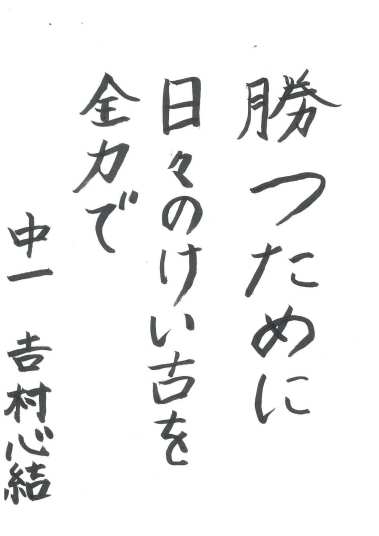 勝つために
日々のけい古を
全力で
中一 吉村心結